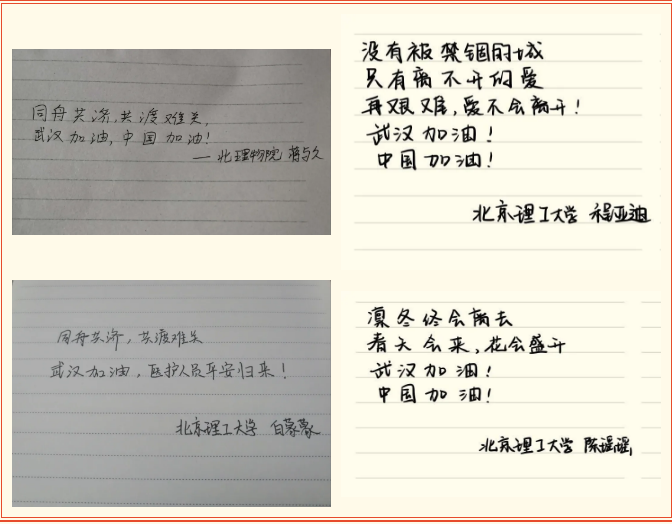 同舟共济,共渡难关,
武汉加油,中国加油!
— 北理物院 蒋与久
没有被禁锢的城
只有离不开的爱
再艰难,爱不会离开!
武汉加油!
中国加油!
北京理工大学 程亚迪
同舟共济,共渡难关
武汉加油,医护人员平安归来!
北京理工大学 白蒙蒙
凛冬终会离去
春天会来,花会盛开
武汉加油!
中国加油!
北京理工大学 陈瑶瑶